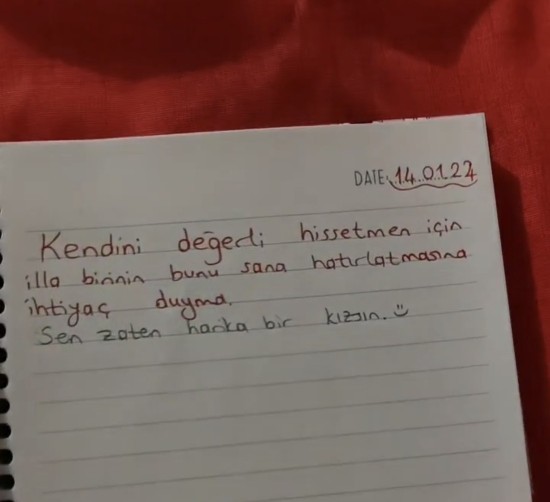 DATE: 14.01.22
Kendini değerli hissetmen için
illa birinin bunu sana hatırlatmasına
ihtiyaç duyma.
Sen zaten harika bir kızsın. :)